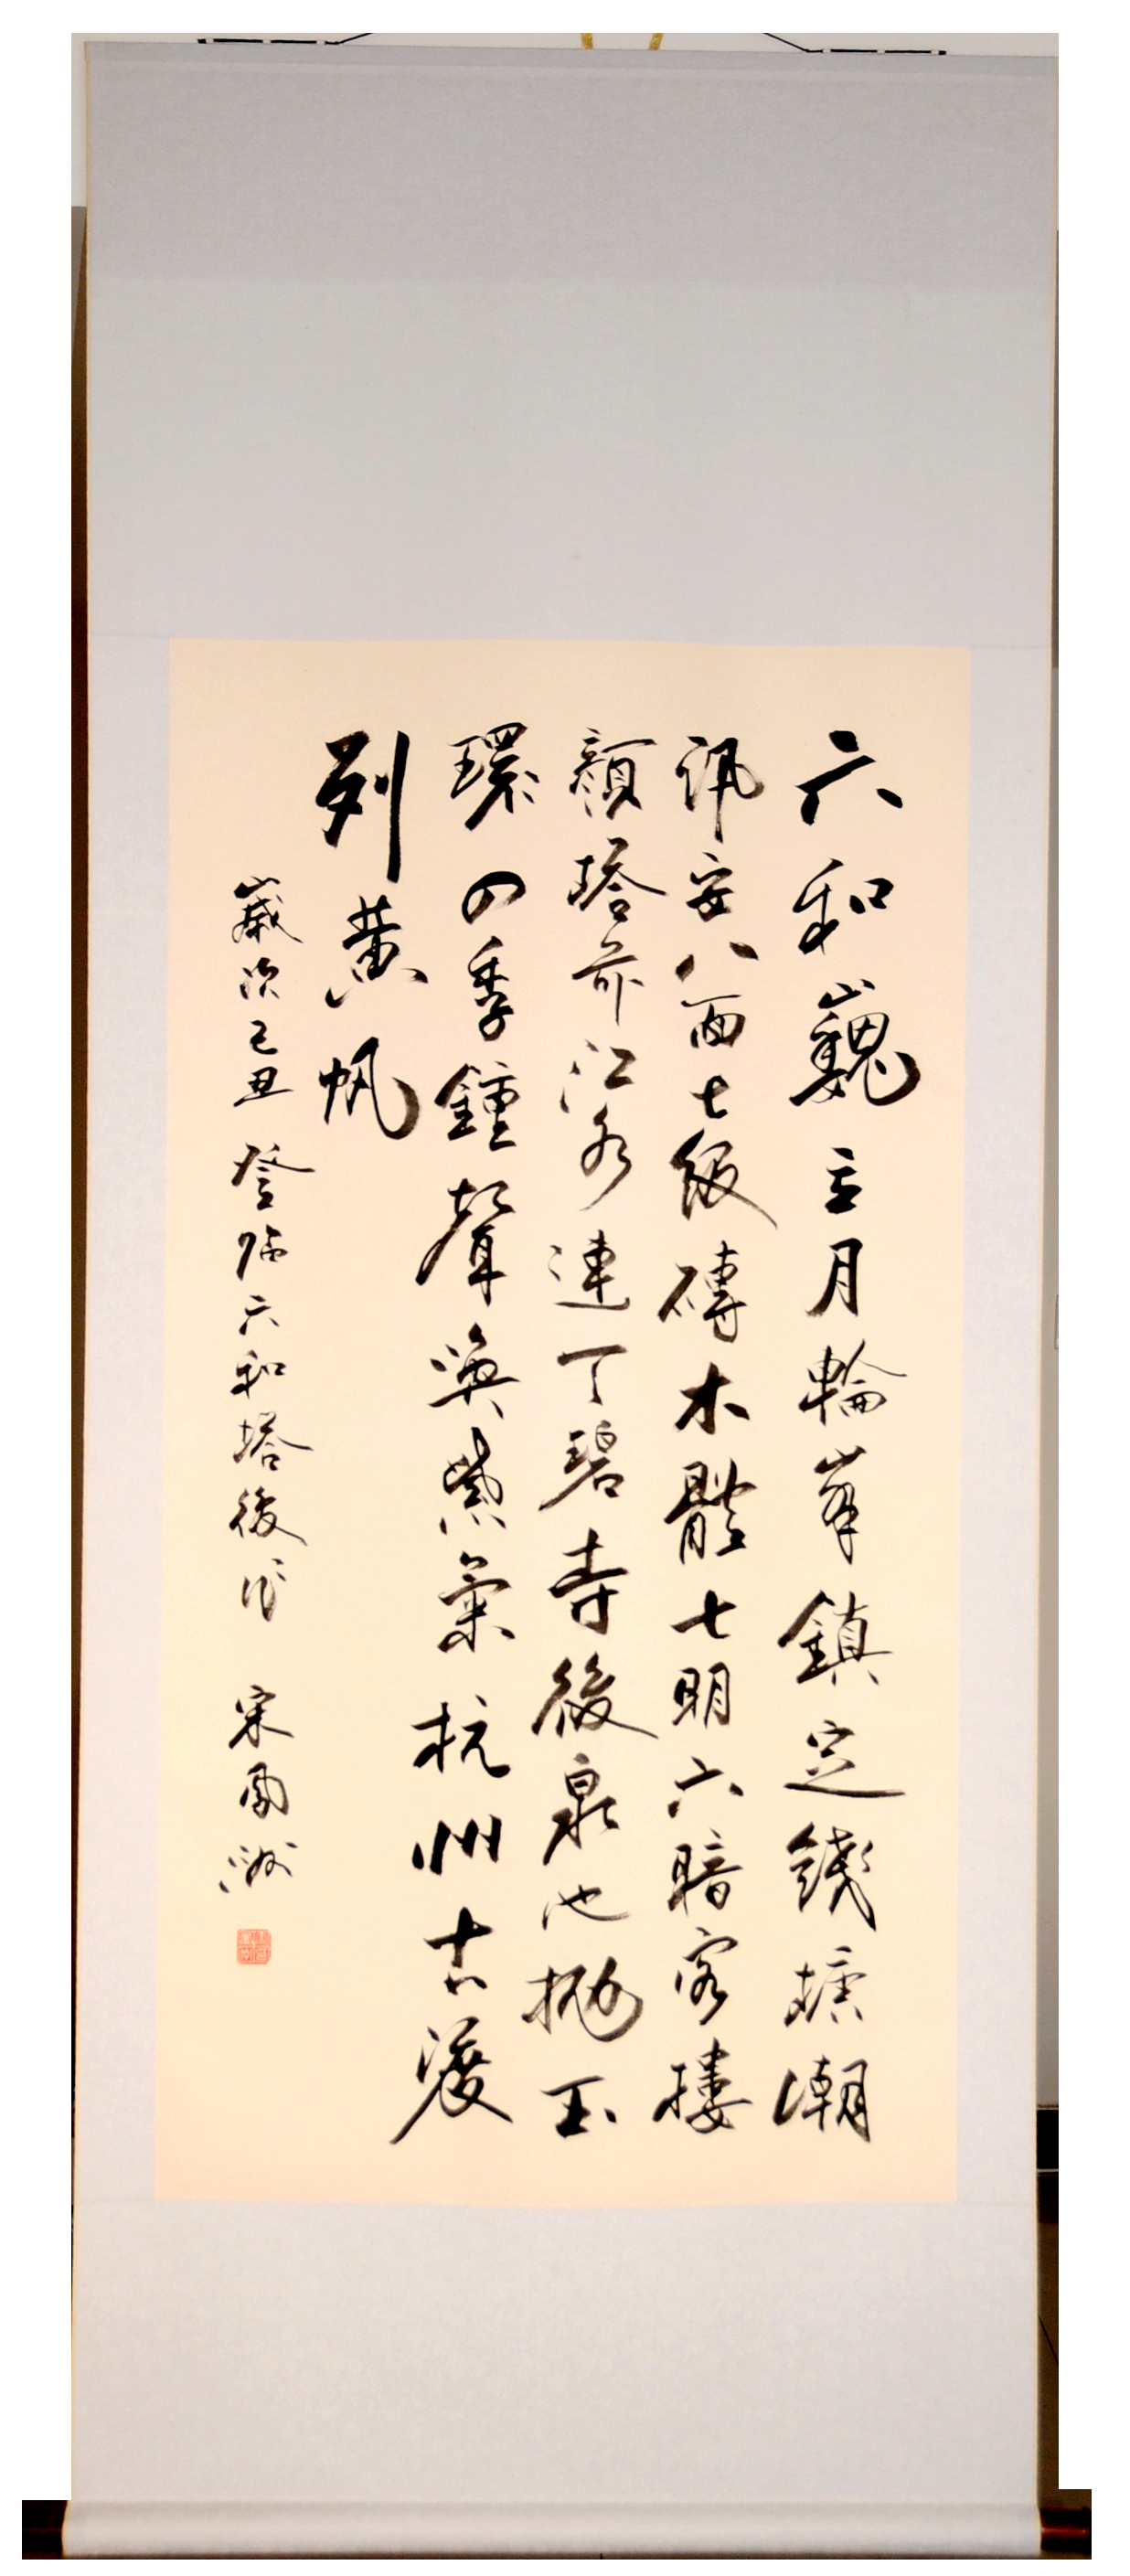 六和巍立月輪峯鎮定錢塘潮
汛安八面七級磚木體七明六暗客樓
顏塔前江水連丁碧寺後泉池拋玉
環四季鐘聲喚紫氣杭州古渡
列黃帆
歲次己丑登臨六和塔後作 宋鳳洲